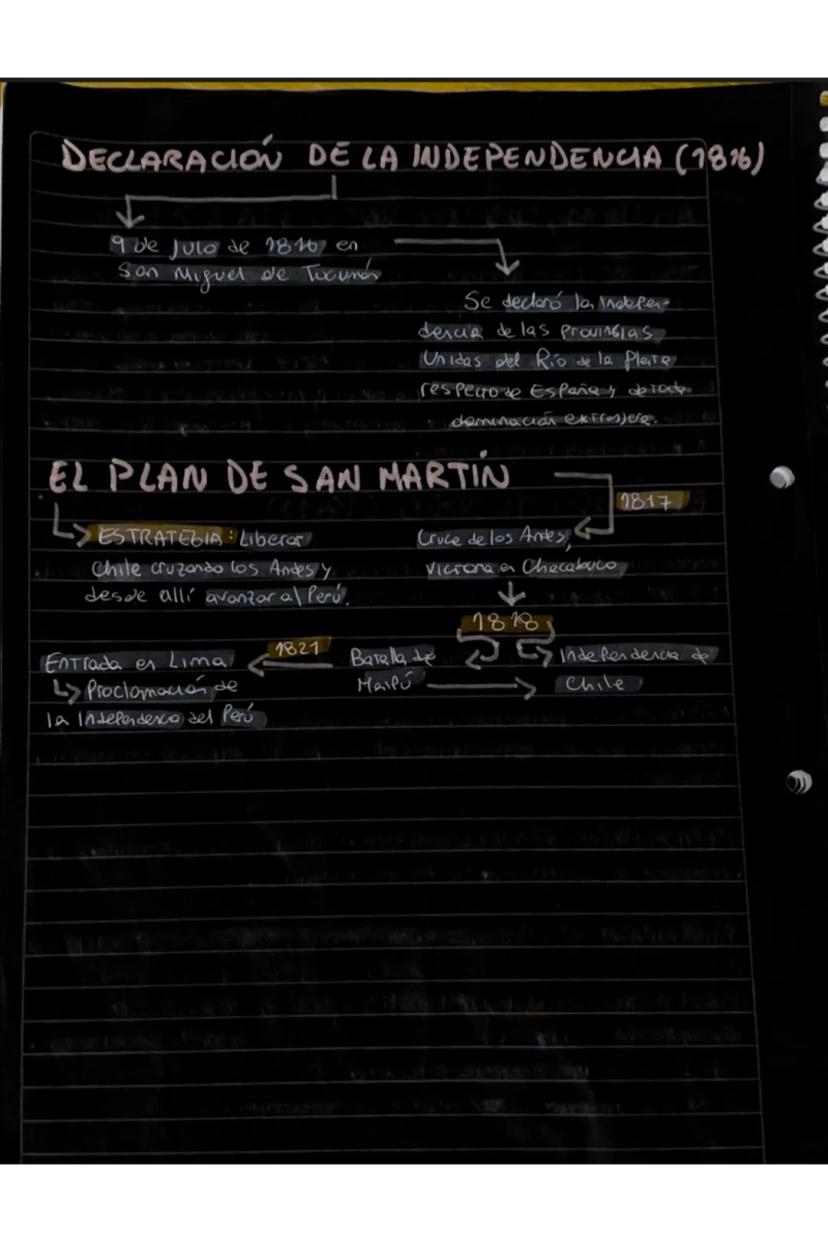 DECLARACIÓN DE LA INDEPENDENCIA (1816)
9 de Julo de 1816 en
San Miguel de Tucumán
Se declaró la Indepen-
dencia de las Provincias
Unidas del Río de la Plata
respecto de España y de toda
dominación extranjera.
EL PLAN DE SAN MARTÍN
1817
ESTRATEGIA: Liberar
Chile cruzando los Andes y
desde allí avanzar al Perú.
Cruce de los Andes,
victoria en Chacabuco
1818
Independencia de
Chile
Batalla de
Maipú
1821
Entrada en Lima
Proclamación de
la Independencia del Perú